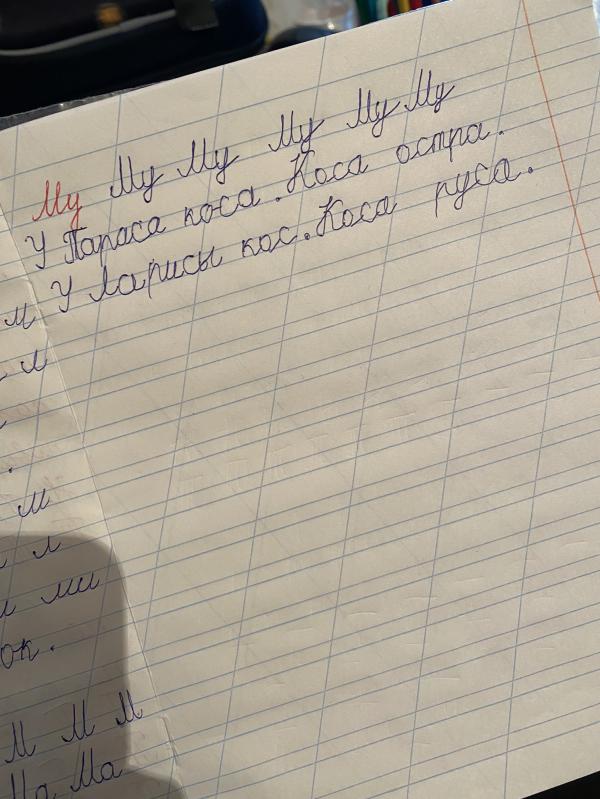 м
л
м
л
ми
ок.
М М М
Ма Ма
Му Му Му Му Му Му
У Тараса коса. Коса остра.
У Ларисы кос. Коса руса.